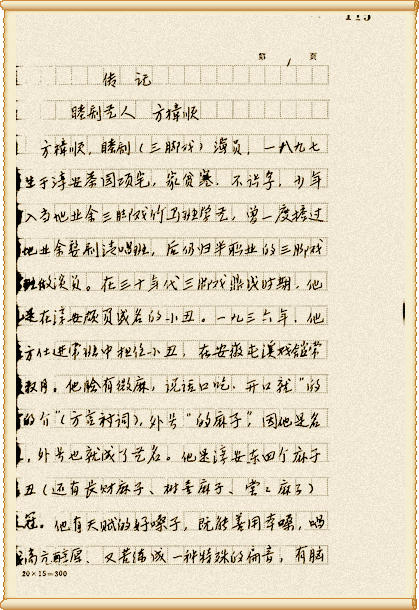 第 1 页
传记
睦剧艺人 方樟顺
方樟顺，睦剧（三脚戏）演员，一八九七
生于淳安茶园项宅，家贫寒，不识字，少年
入当地业余三脚戏竹马班学艺，曾一度搭过
地业余婺剧演唱班，后仍归半职业的三脚戏
班做演员。在三十年代三脚戏鼎盛时期，他
是在淳安颇负盛名的小丑。一九三六年，他
方仕进常班中担任小丑，在安徽屯溪戏馆常
数月。他脸有微麻，说话口吃，开口就"的
的个"（方言衬词），外号"的麻子"，因他是名
，外号也就成了艺名。他是淳安东四个麻子
丑（还有长财麻子、树春麻子、麻子）
冠。他有天赋的好嗓子，既能善用本嗓，唱
高亢醇厚、又苦练成一种特殊的角音，有脑
20×15=300